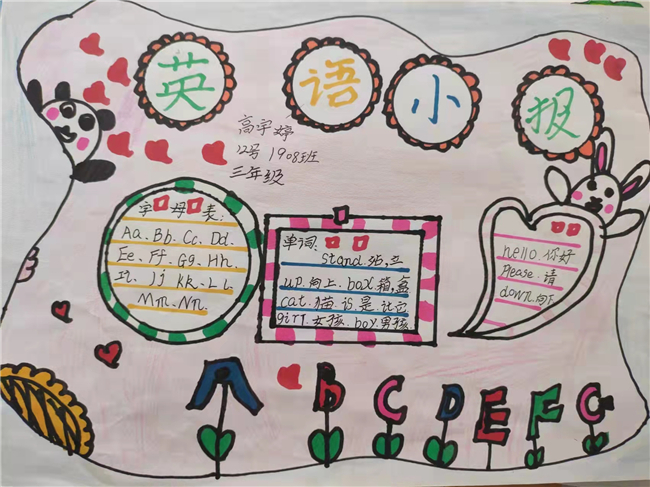 英语小报
高宇婷
12号 1908班
三年级
字母表:
Aa、Bb、Cc、Dd、
Ee、Ff、Gg、Hh、
Ii、Jj、Kk、Ll、
Mm、Nn、
单词:
Stand.站,立
up.向上、box箱,盒
cat.猫 is.是、it它
girl.女孩、boy.男孩
hello.你好
Please.请
down.向下
A B C D E F G